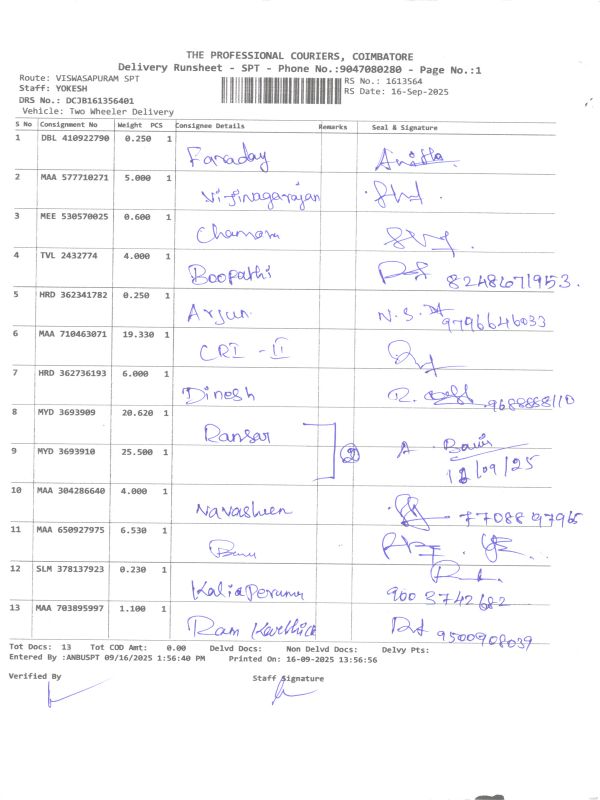 THE PROFESSIONAL COURIERS, COIMBATORE
Delivery Runsheet - SPT - Phone No.:9047080280 - Page No.:1
Route: VISWASAPURAM SPT
RS No.: 1613564
Staff: YOKESH
RS Date: 16-Sep-2025
DRS No.: DCJB161356401
Vehicle: Two Wheeler Delivery
S No Consignment No Weight PCS Consignee Details Remarks Seal & Signature
1 DBL 410922790 0.250 1
Faraday
2 MAA 577710271 5.000 1
Vijinagarajan
3 MEE 530570025 0.600 1
4 TVL 2432774 4.000 1
Boopathi 8248671953.
5 HRD 362341782 0.250 1
Arjun N.S. 9796646033
6 MAA 710463071 19.330 1
CRI - II
7 HRD 362736193 6.000 1
Dinesh R.
8 MYD 3693909 20.620 1
Ransar
9 MYD 3693910 25.500 1
2 A
/09/25
10 MAA 304286640 4.000 1
Navasheen 77088 97965
11 MAA 650927975 6.530 1
12 SLM 378137923 0.230 1
Kaliaperumal 900 3742682
13 MAA 703895997 1.100 1
Ram Karthick 9500908039
Tot Docs: 13 Tot COD Amt: 0.00 Delvd Docs: Non Delvd Docs: Delvy Pts:
Entered By :ANBUSPT 09/16/2025 1:56:40 PM Printed On: 16-09-2025 13:56:56
Verified By Staff Signature